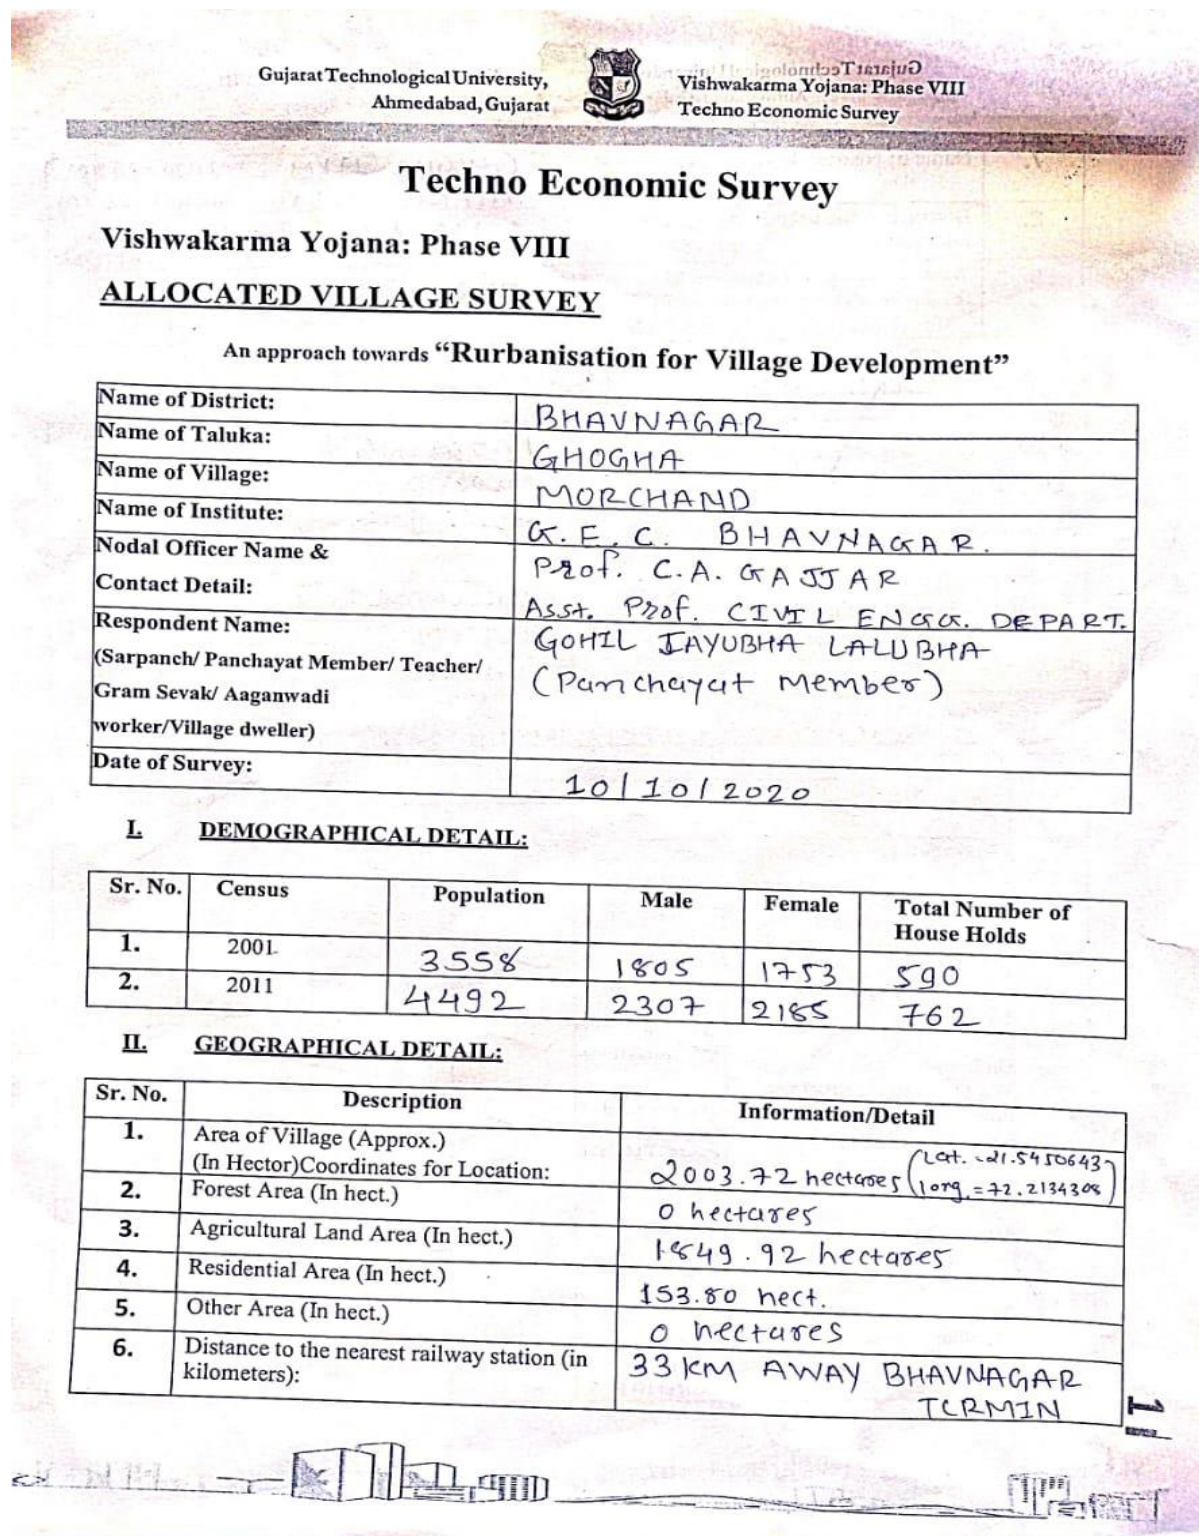 Gujarat Technological University,
Ahmedabad, Gujarat
Vishwakarma Yojana: Phase VIII
Techno Economic Survey
Techno Economic Survey
Vishwakarma Yojana: Phase VIII
ALLOCATED VILLAGE SURVEY
An approach towards “Rurbanisation for Village Development”
Name of District: BHAVNAGAR
Name of Taluka: GHOGHA
Name of Village: MORCHAND
Name of Institute: G.E.C. BHAVNAGAR.
Nodal Officer Name & Prof. C.A. GAJJAR
Contact Detail: Asst. Prof. CIVIL ENGG. DEPART.
Respondent Name: GOHIL JAYUBHA LALUBHA
(Sarpanch/ Panchayat Member/ Teacher/ (Panchayat Member)
Gram Sevak/ Aaganwadi
worker/Village dweller)
Date of Survey: 10/10/2020
I. DEMOGRAPHICAL DETAIL:
Sr. No. Census Population Male Female Total Number of
House Holds
1. 2001 3558 1805 1753 590
2. 2011 4492 2307 2185 762
II. GEOGRAPHICAL DETAIL:
Sr. No. Description Information/Detail
1. Area of Village (Approx.)
(In Hector)Coordinates for Location: 2003.72 hectares (Lat. = 21.5450643
long. = 72.2134308)
2. Forest Area (In hect.) 0 hectares
3. Agricultural Land Area (In hect.) 1849.92 hectares
4. Residential Area (In hect.) 153.80 hect.
5. Other Area (In hect.) 0 hectares
6. Distance to the nearest railway station (in 33 KM AWAY BHAVNAGAR
kilometers): TERMIN
1